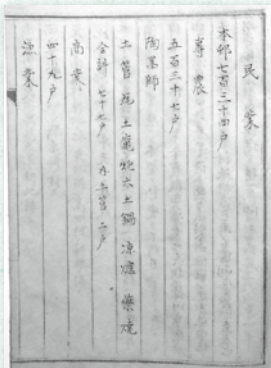 民業
本邨七百三十四戸
專農
五百三十七戸
陶器師
土管瓦土竈炮六土鍋涼爐樂燒
合計七十七戸 内 土管二戸
商業
四十九戸
漁業